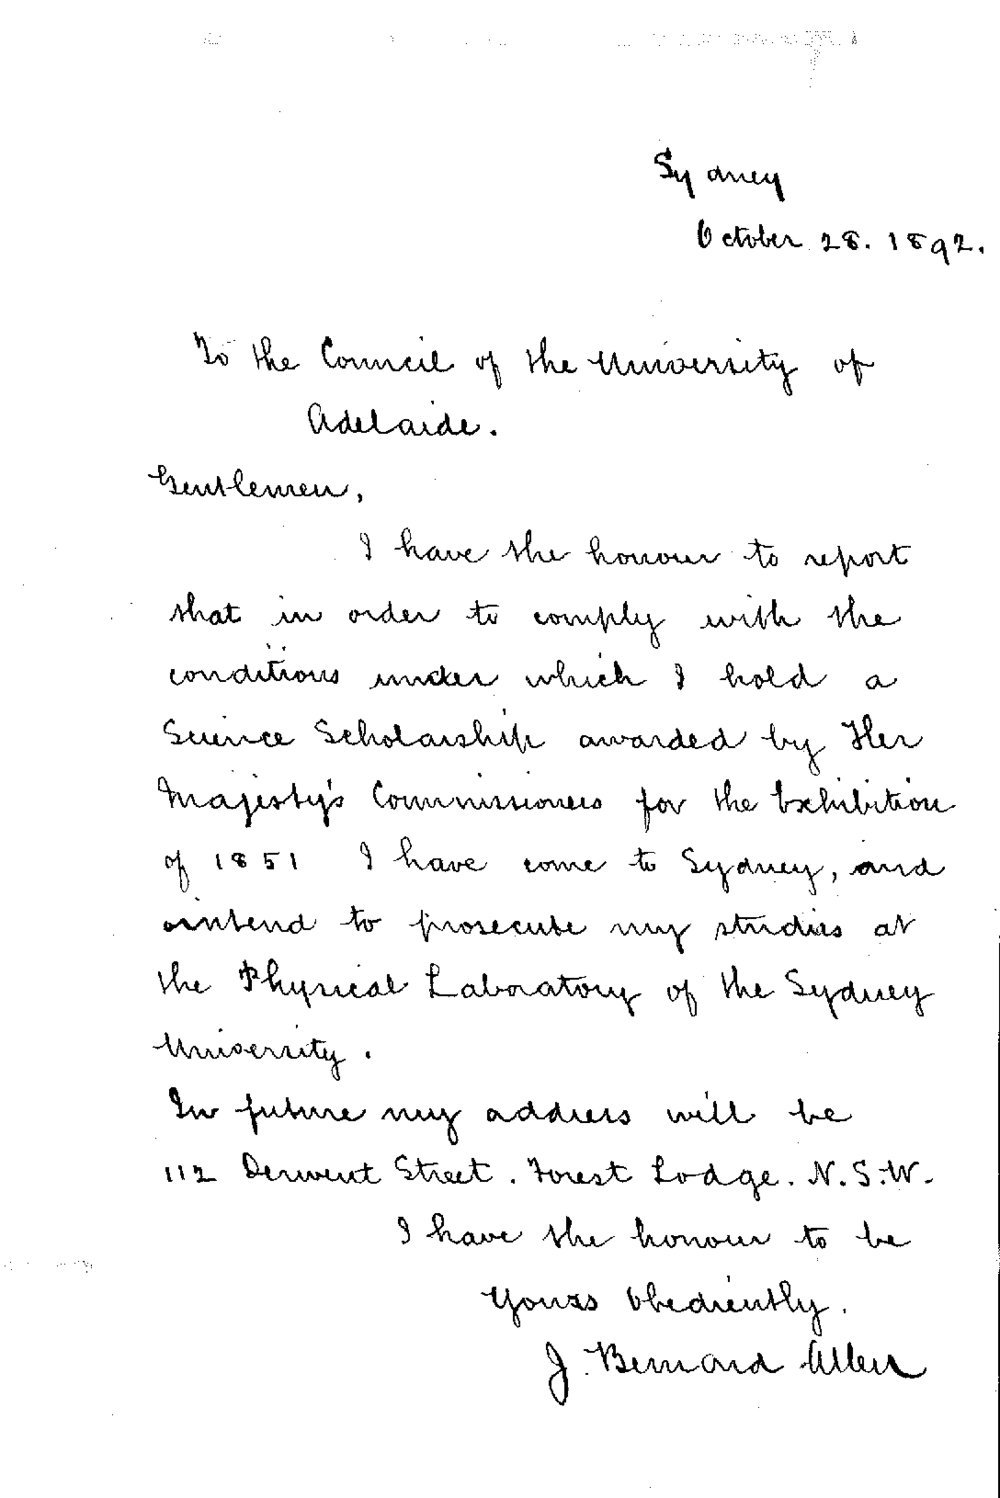 Sydney
October 28. 1892.
To the Council of the University of
Adelaide.
Gentlemen,
I have the honour to report
that in order to comply with the
conditions under which I hold a
Science Scholarship awarded by Her
Majesty's Commissioners for the Exhibition
of 1851 I have come to Sydney, and
intend to prosecute my studies at
the Physical Laboratory of the Sydney
University.
In future my address will be
112 Derwent Street. Forest Lodge. N.S.W.
I have the honour to be
Yours obediently.
J. Bernard Allen